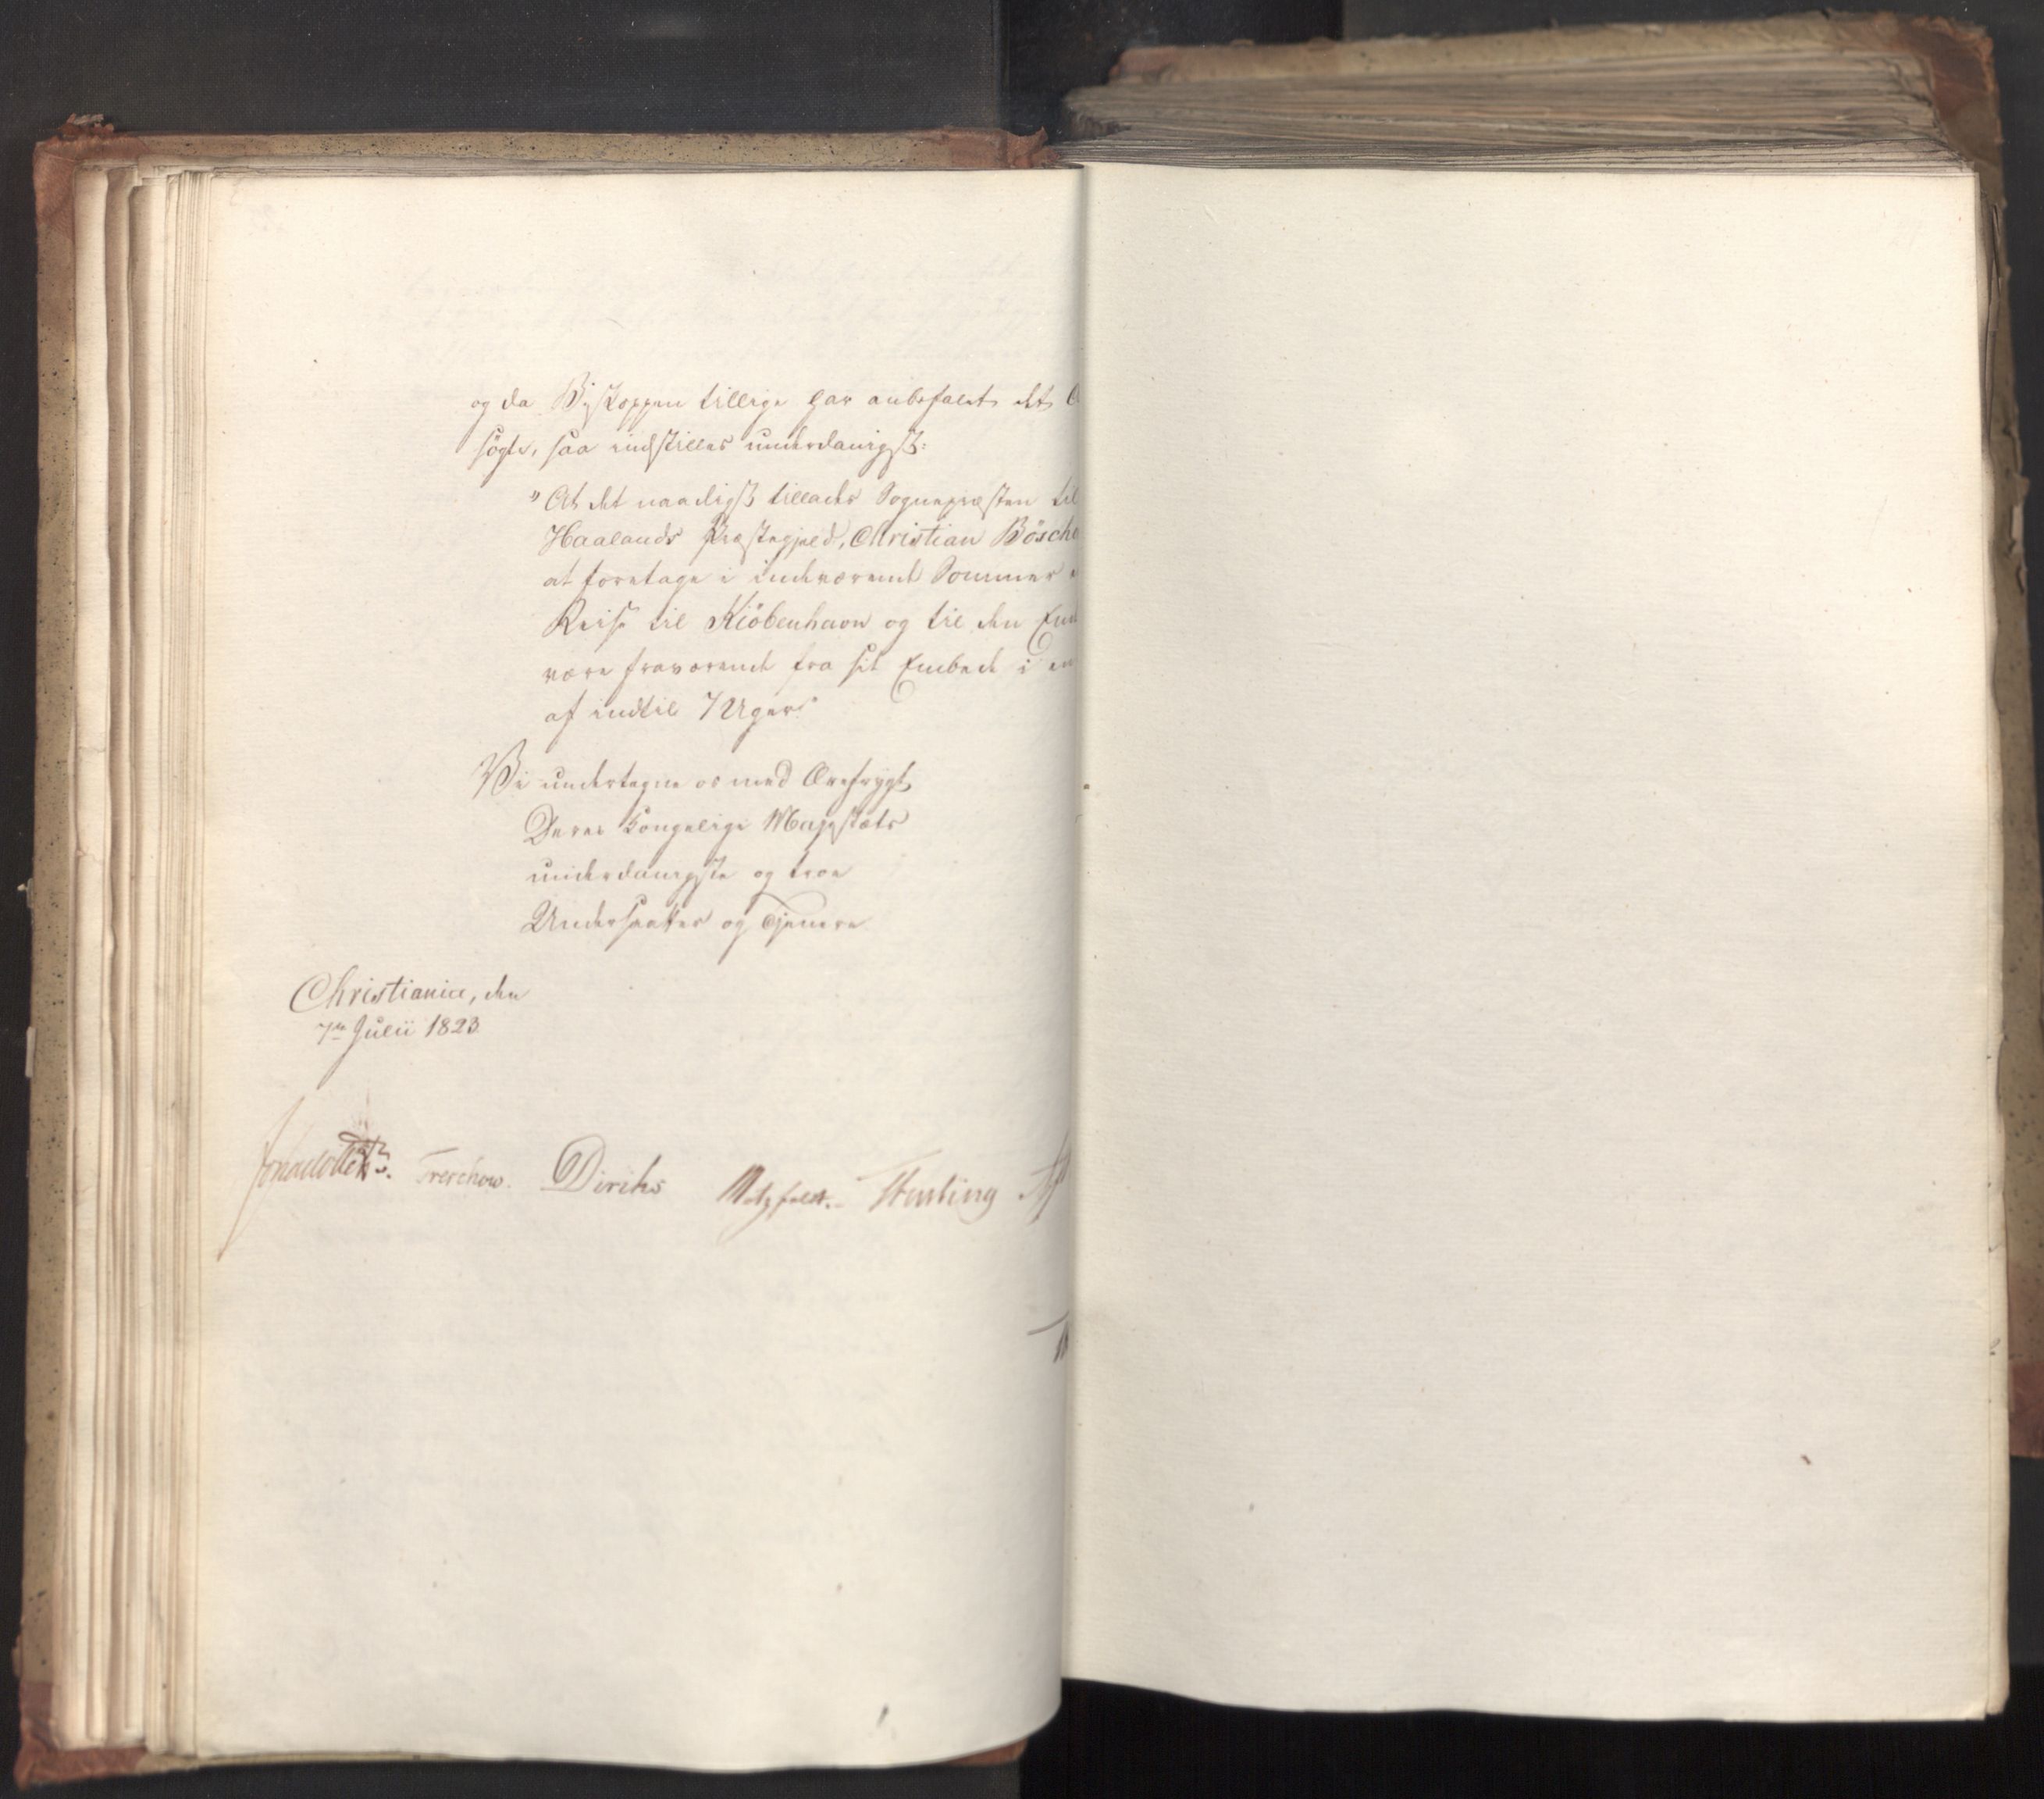 og da Biskoppen tillige har anbefalet det
søgte, saa indstilles underdanigst:
"At det naadigst tillades Sognepræsten til
Haalands Præstegjeld, Christian Bösche
at foretage i indeværende Sommer
Reise til Kiöbenhavn og til den End
være fraværende fra sit Embede i en
af indtil 7 Uger"
Vi undertegne os med Ærefrygt
Deres Kongelige Majestæts
underdanigste og troe
Undersaatter og Tjenere
Christiania, den
7de Julii 1823.
Treschow. Diriks Motzfeldt. Fasting